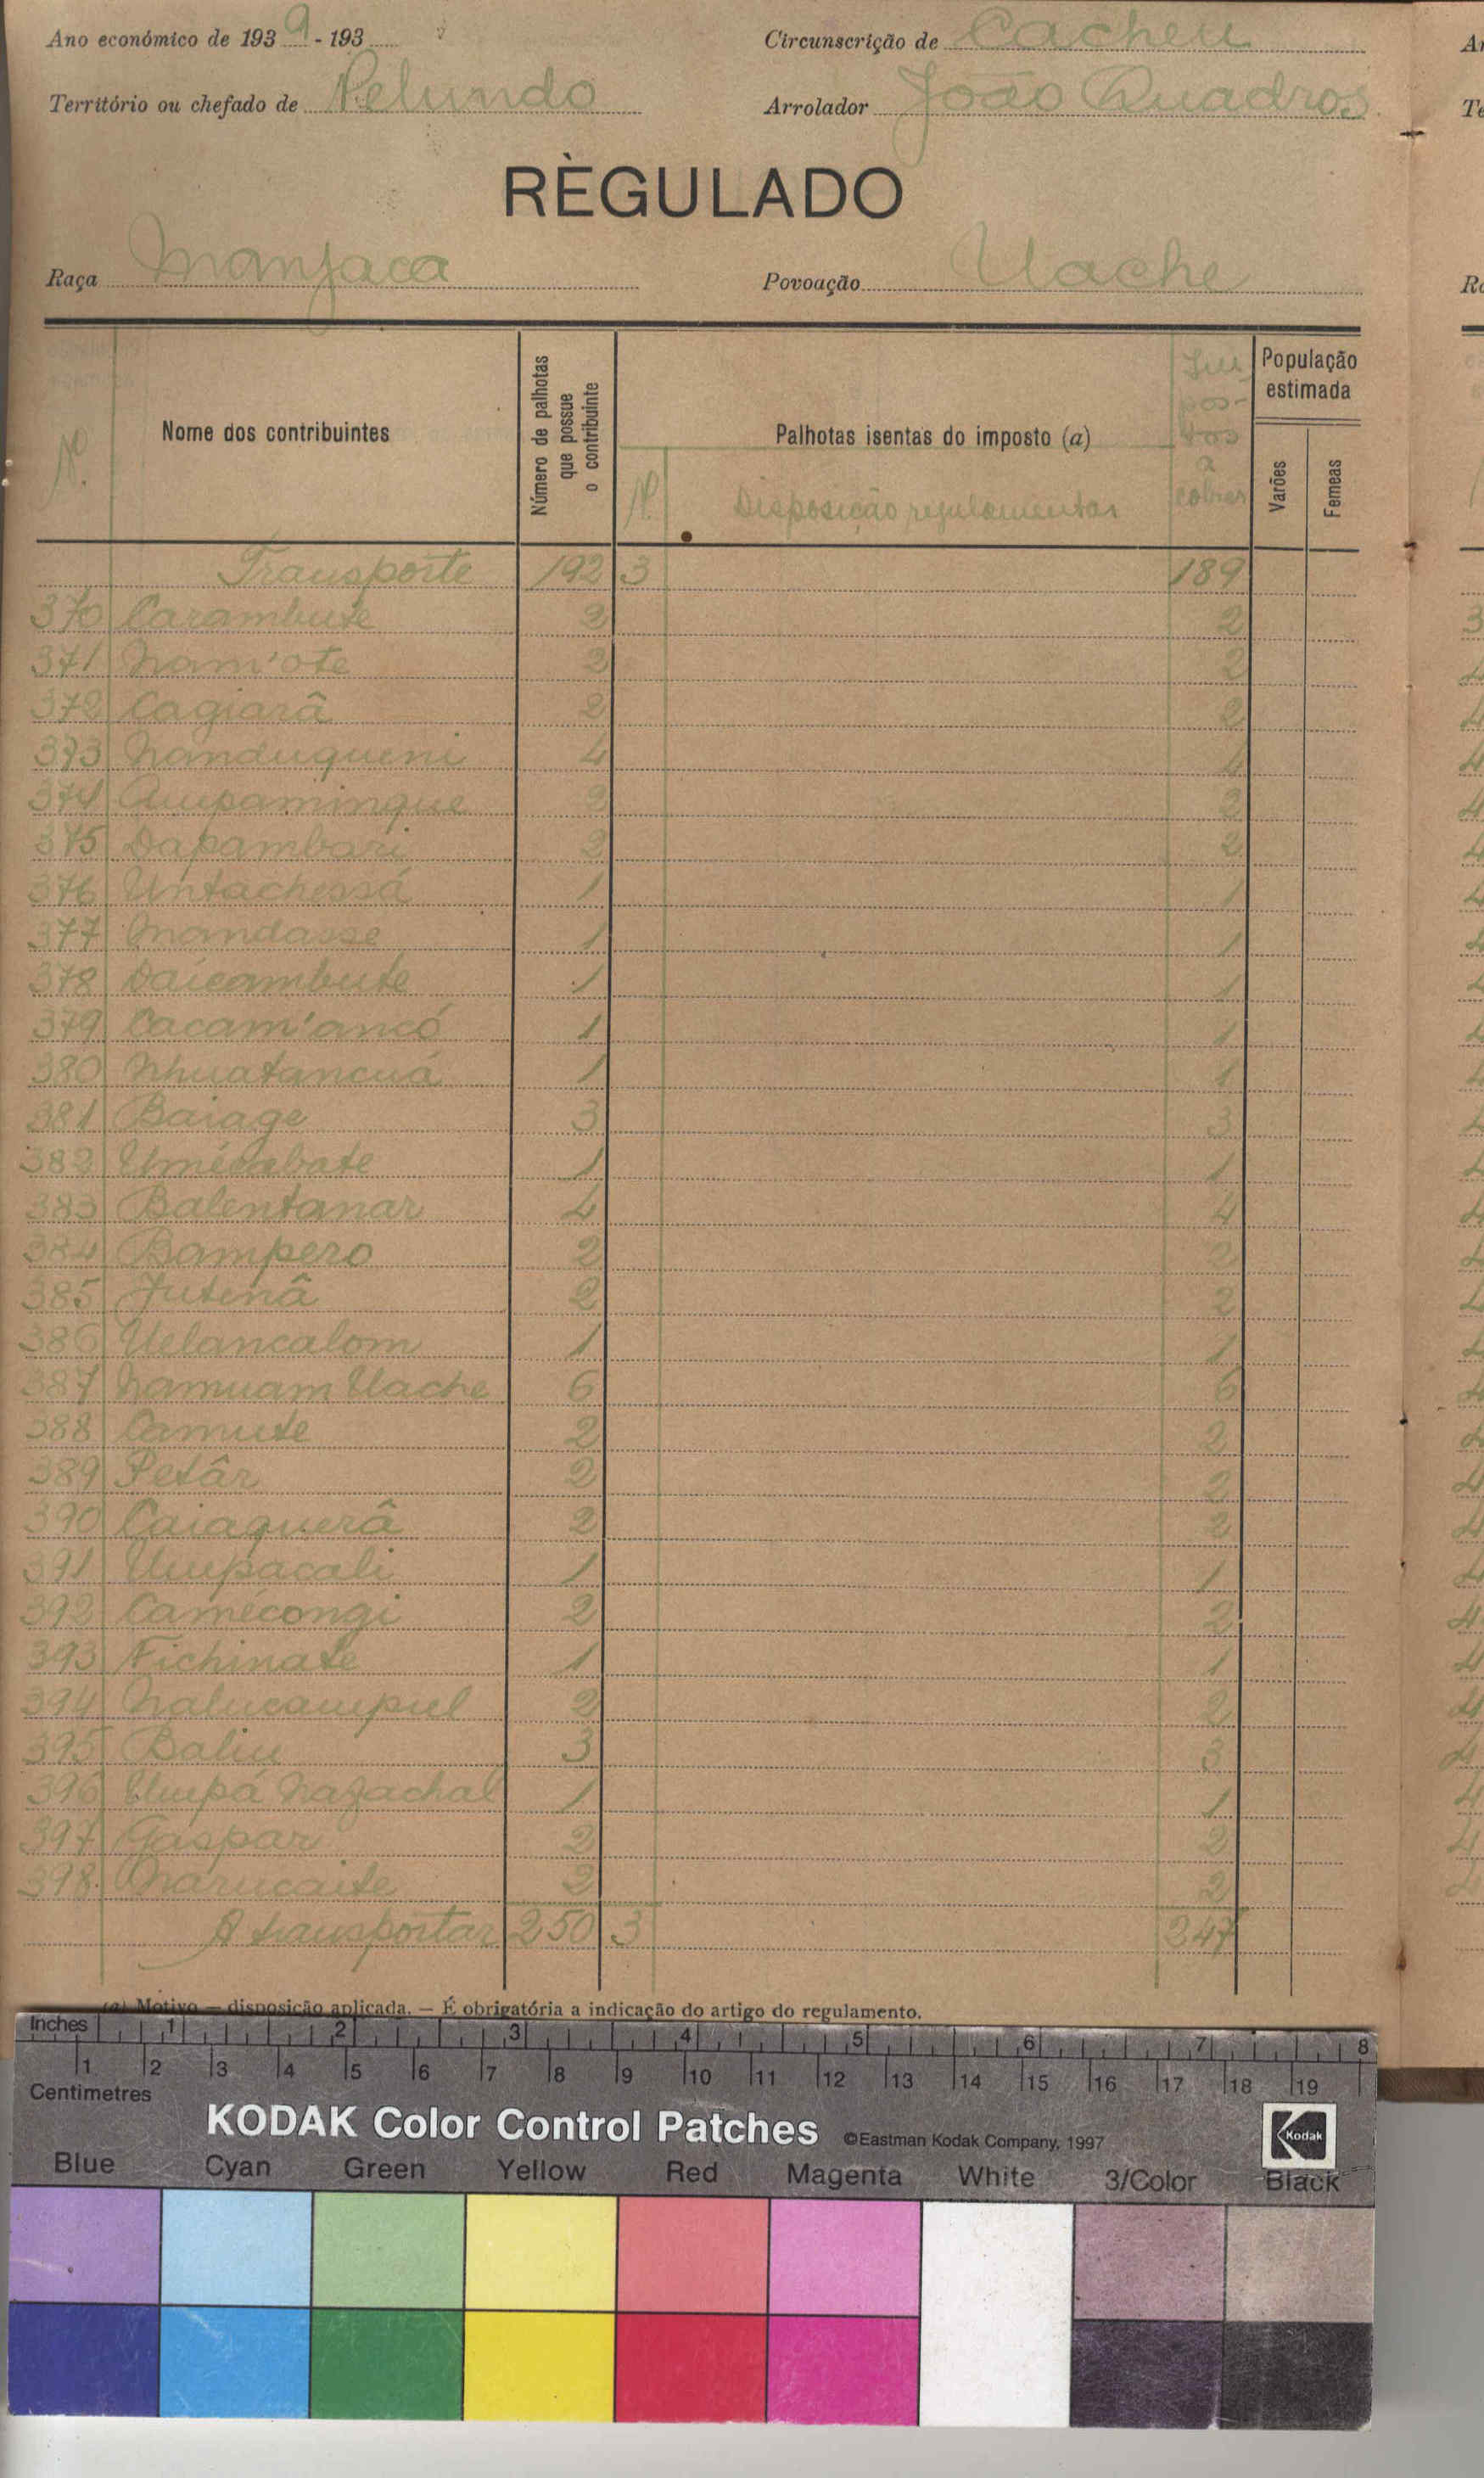 Ano económico de 1939 - 193
Circunscrição de Cacheu
Território ou chefado de Pelundo
Arrolador João Quadros
RÈGULADO
Raça Manjaca
Povoação Uache
Nº
Nome dos contribuintes
Número de palhotas que possue o contribuinte
Palhotas isentas do imposto (a)
Nº
Disposição regulamentar
Im-
pos-
tos
a
cobrar
População estimada
Varões
Femeas
Transporte 192 3 189
370 Carambute 2 2
371 Nam'ote 2 2
372 Cagiarâ 2 2
373 Nanduqueni 4 4
374 Aupamingue 2 2
375 Dapambari 2 2
376 Untachessá 1 1
377 Mandasse 1 1
378 Daicambute 1 1
379 Cacam'ancó 1 1
380 Nhuatancuá 1 1
381 Baiage 3 3
382 1 1
383 Balentanar 4 4
384 Bampero 2 2
385 Jutenâ 2 2
386 Uelancalom 1 1
387 Namuam Uache 6 6
388 Camute 2 2
389 Petâr 2 2
390 Caiaquerâ 2 2
391 Umpacali 1 1
392 Camécongi 2 2
393 Fichinate 1 1
394 Nalucampiel 2 2
395 Baliu 3 3
396 Umpá Najachal 1 1
397 Gaspar 2 2
398 Narucaite 2 2
A transportar 250 3 247
(a) Motivo — disposição aplicada. — É obrigatória a indicação do artigo do regulamento.
Inches 1 2 3 4 5 6 7 8
1 2 3 4 5 6 7 8 9 10 11 12 13 14 15 16 17 18 19
Centimetres
KODAK Color Control Patches ©Eastman Kodak Company, 1997 Kodak
Blue Cyan Green Yellow Red Magenta White 3/Color Black